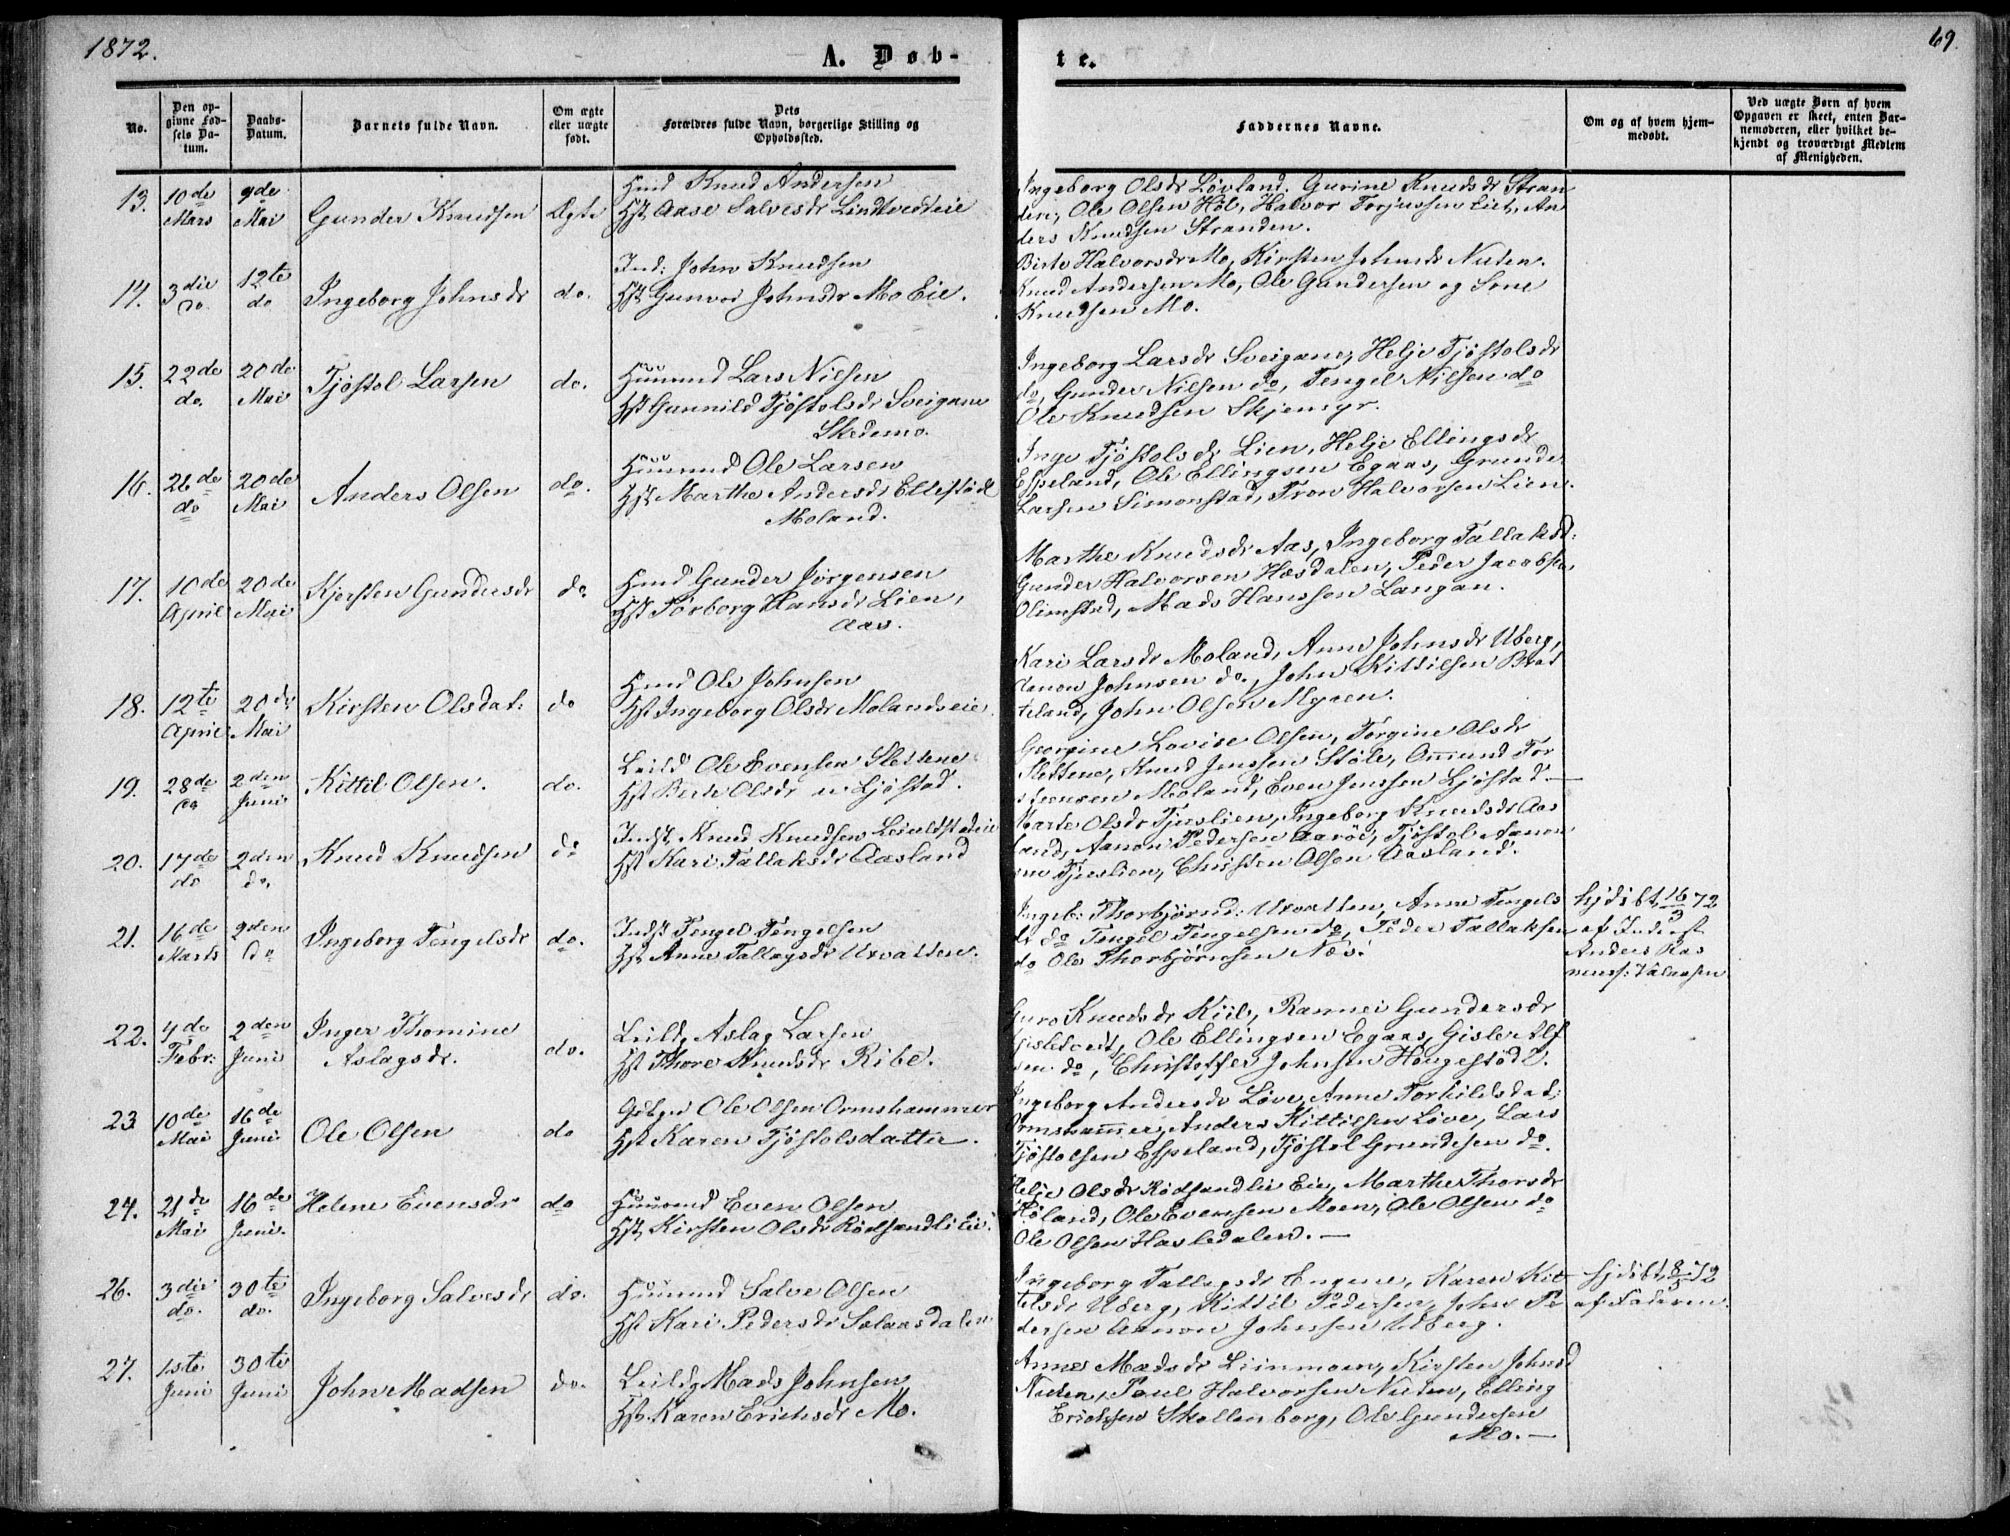 1872.
A. Døb-
te.
69.
No.
Den op-
givne Fød-
sels Da-
tum.
Daabs-
Datum.
Barnets fulde Navn.
Om ægte
eller uægte
født.
Dets
Forældres fulde Navn, borgerlige Stilling og
Opholdssted.
Faddernes Navne.
Om og af hvem hjem-
medøbt.
Ved uægte Børn af hvem
Opgaven er skeet, enten Bar-
nemoderen, eller hvilket be-
kjendt og troværdigt Medlem
af Menigheden.
13. 10de Mars 9de Mai Gunder Knudsen Ægte
Hmd Knud Andersen
Hst. Aase Salvesdr Lindtvedteie
Ingeborg Olsdr Løvland. Gurine Knudsdr Stran
den, Ole Olsen Høl, Halvor Torjussen Eiet, An
ders Knudsen Stranden.
14. 3die do. 12te do Ingeborg Johnsdr do.
Ind: John Knudsen
Hst Gunvor Johnsdr Mo Eie.
Birte Halvorsdr Mo, Kirsten Johnsdr Nuten.
Knud Andersen Mo, Ole Gundersen og
Knudsen Mo.
15. 22de do. 20de Mai Tjøstol Larsen do.
Huusmd Lars Nilsen
Hst Gunnild Tjøstolsdr Sveigane
Skedemo.
Ingeborg Larsdr Sveigane, Helje Tjøstolsdr
do, Gunder Nilsen do, Tengel Nilsen do
Ole Knudsen Skjemyr.
16. 26de do 20de Mai Anders Olsen do.
Huusmd Ole Larsen
Hst Marthe Andersdr Ellestødl
Moland.
Inge Tjøstolsdr Lien, Helje Ellingsdr
Espeland, Ole Ellingsen Egaas, Grunde
Larsen Simonstad, Tron Halvorsen Lien.
17. 10de April 20de Mai Kjersten Gundersdr do
Hmd Gunder Jørgensen
Hst Torborg Hansdr Lien,
Aas.
Marthe Knudsdr Aas, Ingeborg Tallaksd:
Gunder Halvorsen Hæsdalen, Peder Jacobsen
Olimstad, Mads Hansen Langan.
18. 12te April 20de Mai Kirsten Olsdat: do
Hmd Ole Johnsen
Hst Ingeborg Olsdr Molandseie.
Kari Larsdr Moland, Anne Johnsdr Uberg,
Aanon Johnsen do., John Kittilsen Brat
teland, John Olsen Myren.
19. 28de 2den Juni Kittil Olsen. do.
Leild Ole Evensen Slettene
Hst Berte Olsdr Ljøstad.
Georgine Lovise Olsen, Torgine Olsdr
Slettene, Knud Jenssen Støle, Omund Tor
Moland, Even Jenssen Ljøstad. —
20. 17de do 2den do. Knud Knudsen do
Indst. Knud Knudsen
Hst Kari Tallaksdr Aasland
Marte Olsdr Tjuslien, Ingeborg Knudsdr Aas
land, Aanon Pedersen Aarøe, Tjøstol Aanon
sen Tjuslien, Christen Olsen Aasland.
21. 16de Marts 2den do Ingeborg Tengelsdr do.
Indst Tengel Tengelsen
Hst Anne Tallagsdr Uxvatten.
Ingeb: Thorbjørnd: Uxvatten, Anne Tengels
dr do Tengel Tengelsen do, Peder Tallaksen
do Ole Thorbjørnsen Næs.
hjdøbt. 16/3 72
af Inderst
Anders Ras
22. 4de Febr: 2den Juni Inger Thomine
Aslagsdr. do.
Leild, Aslag Larsen
Hst Thore Knudsdr Ribe.
Guro Knudsdr Kiil, Rannei Gundersdr
Ole Ellingsen Egaas, Gisle Alf
sen do, Christoffer Johnsen Haugestødl.
23 10de Mai 16de Juni Ole Olsen do
Gbbgr Ole Olsen Ormshammer
Hst Karen Tjøstolsdatter.
Ingeborg Andersdr Løve, Anne Torkildsdat:
Ormshammer, Anders Kittilsen Løve, Lars
Tjøstolsen Espeland, Tjøstol Grundesen do.
24. 21de Mai 16de Juni. Helene Evensdr do
Huusmd Even Olsen
Hst, Kirsten Olsdr Rødsandli Eie.
Helje Olsdr Rødsandlie Eie, Marthe Thorsdr
Høland, Ole Evensen Moen, Ole Olsen do
Ole Olsen Hasledalen. —
26. 3die do. 30te do. Ingeborg Salvesdr do.
Huusmd Salve Olsen
Hst Kari Pedersdr Solaasdalen
Ingeborg Tallagsdr Engene, Karen Kit
telsdr Uberg, Kittil Pedersen, John Pe
dersen Aanon Johnsen Uberg.
hjdøbt, 8/5 72
af Faderen.
27. 1ste Juni 30te Juni John Madsen do.
Leild, Mads Johnsen
Hst. Karen Erichsdr Mo.
Anne Madsdr Liinmoen, Kirsten Johnsd
Nuten, Paul Halvorsen Nuten, Elling
Erichsen Skollenborg, Ole Gundersen
Mo. —